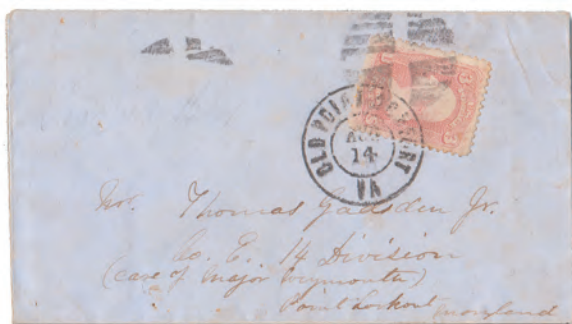 OLD POINT COMFORT
AUG
14
VA
3 3
Mr. Thomas Gadsden Jr.
Co. E. 14 Division
(Care of Major Weymouth)
Point Lookout Maryland